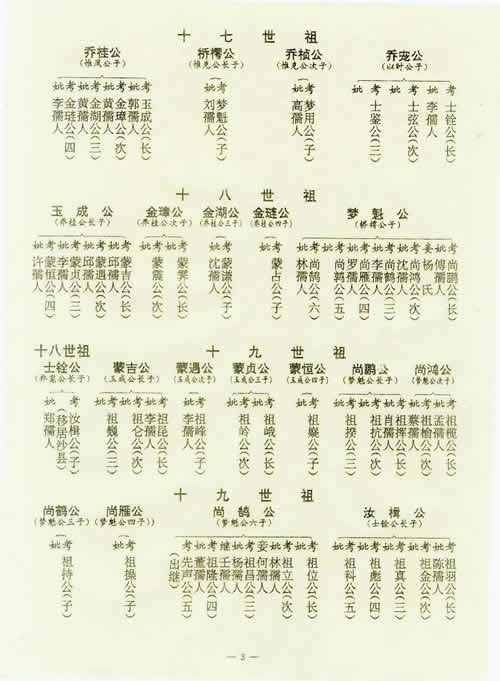 十七世祖
乔桂公
(惟凤公子)
考 玉成公(长)
妣 郭孺人
考 金璋公(次)
妣 黄孺人
考 金湖公(三)
妣 黄孺人
考 金琏公(四)
妣 李孺人
桥樗公
(惟尧公长子)
考 梦魁公(子)
妣 刘孺人
乔桢公
(惟尧公次子)
考 梦用公(子)
妣 高孺人
乔宠公
(以时公子)
考 士铨公(长)
妣 李孺人
考 士弦公(次)
妣
考 士鉴公(三)
妣
十八世祖
玉成公
(乔桂公长子)
考 蒙吉公(长)
妣 邱孺人
考 蒙遇公(次)
妣 邱孺人
考 蒙贞公(三)
妣 李孺人
考 蒙恒公(四)
妣 许孺人
金璋公
(乔桂公次子)
考 蒙霁公(长)
妣
考 蒙震公(次)
妣
金湖公
(乔桂公三子)
考 蒙谦公(子)
妣 沈孺人
金琏公
(乔桂公四子)
考 蒙占公(子)
妣
梦魁公
(桥樗公子)
考 尚鹏公(长)
妣 傅孺人
妾 杨氏
考 尚鸿公(次)
妣 沈孺人
考 尚鹤公(三)
妣 李孺人
考 尚雁公(四)
妣 罗孺人
考 尚鹑公(五)
妣
考 尚鹄公(六)
妣 林孺人
十八世祖
士铨公
(乔宠公长子)
考 汝楫公(子)
(移居沙县)
妣 郑孺人
十九世祖
蒙吉公
(玉成公长子)
考 祖昆公(长)
妣 李孺人
考 祖仑公(次)
妣
考 祖巍公(三)
妣
蒙遇公
(玉成公次子)
考 祖峰公(子)
妣 李孺人
蒙贞公
(玉成公三子)
考 祖峨公(长)
妣
考 祖岭公(次)
妣
蒙恒公
(玉成公四子)
考 祖嶷公(子)
妣
尚鹏公
(梦魁公长子)
考 祖挥公(长)
妣 肖孺人
考 祖抗公(次)
妣
考 祖揆公(三)
妣
尚鸿公
(梦魁公次子)
考 祖榄公(长)
妣 孟孺人
考 祖榆公(次)
妣 蔡孺人
十九世祖
尚鹤公
(梦魁公三子)
考 祖持公(子)
妣
尚雁公
(梦魁公四子)
考 祖操公(子)
妣
尚鹄公
(梦魁公六子)
考 祖位公(长)
妣
考 祖立公(次)
妣 林孺人
妾 何孺人
考 祖昌公(三)
妣 杨孺人
继 壬孺人
考 祖隆公(四)
妣 董孺人
考 先声公(五)
(出继)
妣
汝楫公
(士铨公长子)
考 祖羽公(长)
妣 陈孺人
考 祖金公(次)
妣
考 祖真公(三)
妣
考 祖彪公(四)
妣
考 祖科公(五)
妣
— 3 —